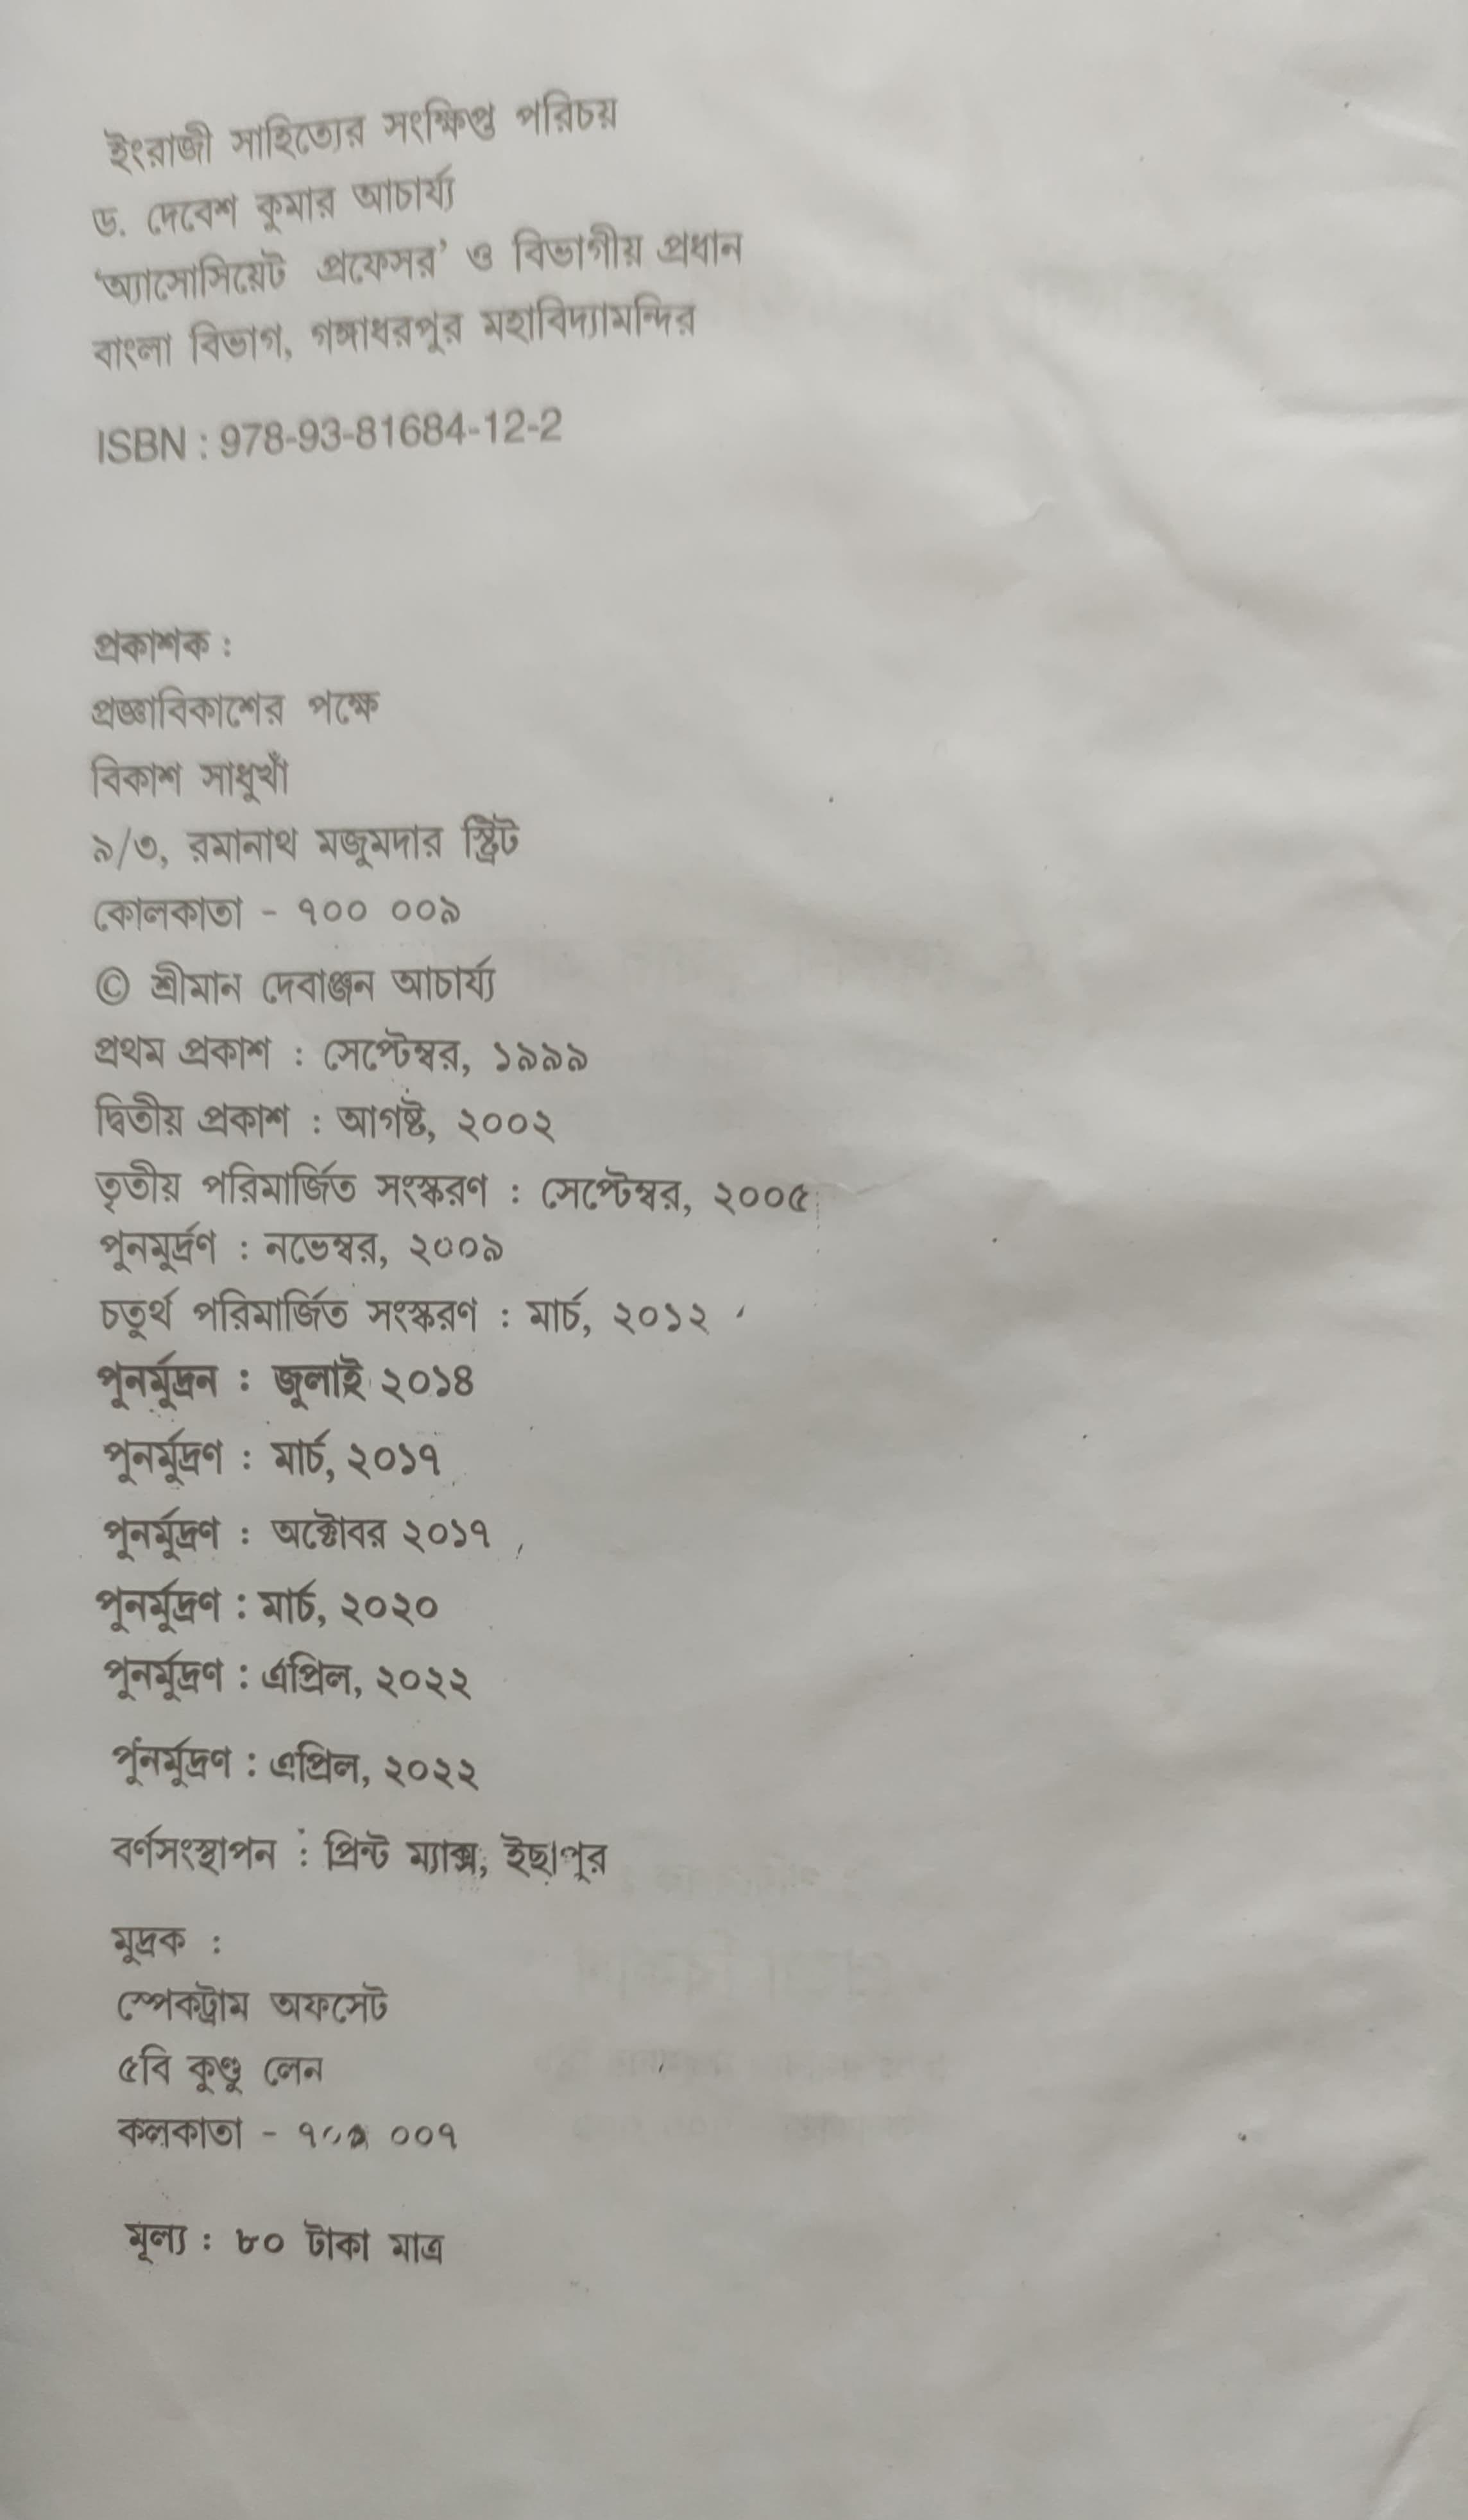 ইংরাজী সাহিত্যের সংক্ষিপ্ত পরিচয়
ড. দেবেশ কুমার আচার্য্য
‘অ্যাসোসিয়েট প্রফেসর’ ও বিভাগীয় প্রধান
বাংলা বিভাগ, গঙ্গাধরপুর মহাবিদ্যামন্দির
ISBN : 978-93-81684-12-2
প্রকাশক :
প্রজ্ঞাবিকাশের পক্ষে
বিকাশ সাধুখাঁ
৯/৩, রমানাথ মজুমদার স্ট্রিট
কোলকাতা - ৭০০ ০০৯
© শ্রীমান দেবাঞ্জন আচার্য্য
প্রথম প্রকাশ : সেপ্টেম্বর, ১৯৯৯
দ্বিতীয় প্রকাশ : আগষ্ট, ২০০২
তৃতীয় পরিমার্জিত সংস্করণ : সেপ্টেম্বর, ২০০৫
পুনমুর্দ্রণ : নভেম্বর, ২০০৯
চতুর্থ পরিমার্জিত সংস্করণ : মার্চ, ২০১২
পুনর্মুদ্রন : জুলাই ২০১৪
পুনর্মুদ্রণ : মার্চ, ২০১৭
পুনর্মুদ্রণ : অক্টোবর ২০১৭
পুনর্মুদ্রণ : মার্চ, ২০২০
পুনর্মুদ্রণ : এপ্রিল, ২০২২
পুনর্মুদ্রণ : এপ্রিল, ২০২২
বর্ণসংস্থাপন : প্রিন্ট ম্যাক্স, ইছাপুর
মুদ্রক :
স্পেকট্রাম অফসেট
৫বি কুণ্ডু লেন
কলকাতা - ০০৭
মূল্য : ৮০ টাকা মাত্র